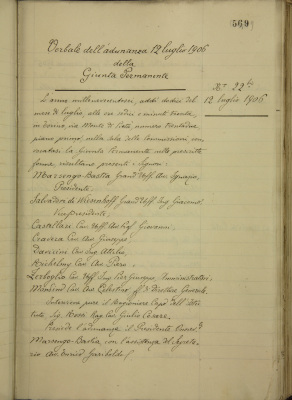 569
Verbale dell'adunanza 12 luglio 1906
della
Giunta Permanente
N.º 22
12 luglio 1906
L'anno millenovecentosei, addì dodici del
mese di luglio, alle ore sedici e minuti trenta,
in Torino, via Monte di Pietà, numero
piano primo, nella sala delle
la Giunta Permanente nelle prescritte
forme, risultano presenti i Signori:
Marsengo-Bastia Grand'Uff. Avv. Ignazio,
Presidente,
Salvadori di Wiesenhoff Grand'Uff. Ing. Giacomo,
Vicepresidente,
Castellari Cav. Uff. Giovanni,
Cav. Avv. Giuseppe,
Cav. Ing. Attilio,
Cav. Avv. Piero,
Zerboglio Cav. Uff. Ing. Pier Giuseppe, Amministratori,
Cav. Avv. Celestino, ff. di Direttore Generale.
Interviene pure il Ragioniere Capo dell'Isti-
tuto, Sig. Rossi Rag. Cav. Giulio Cesare.
Presiede l'adunanza il Presidente
Marsengo-Bastia, con l'assistenza del Segreta-
rio Garibaldi